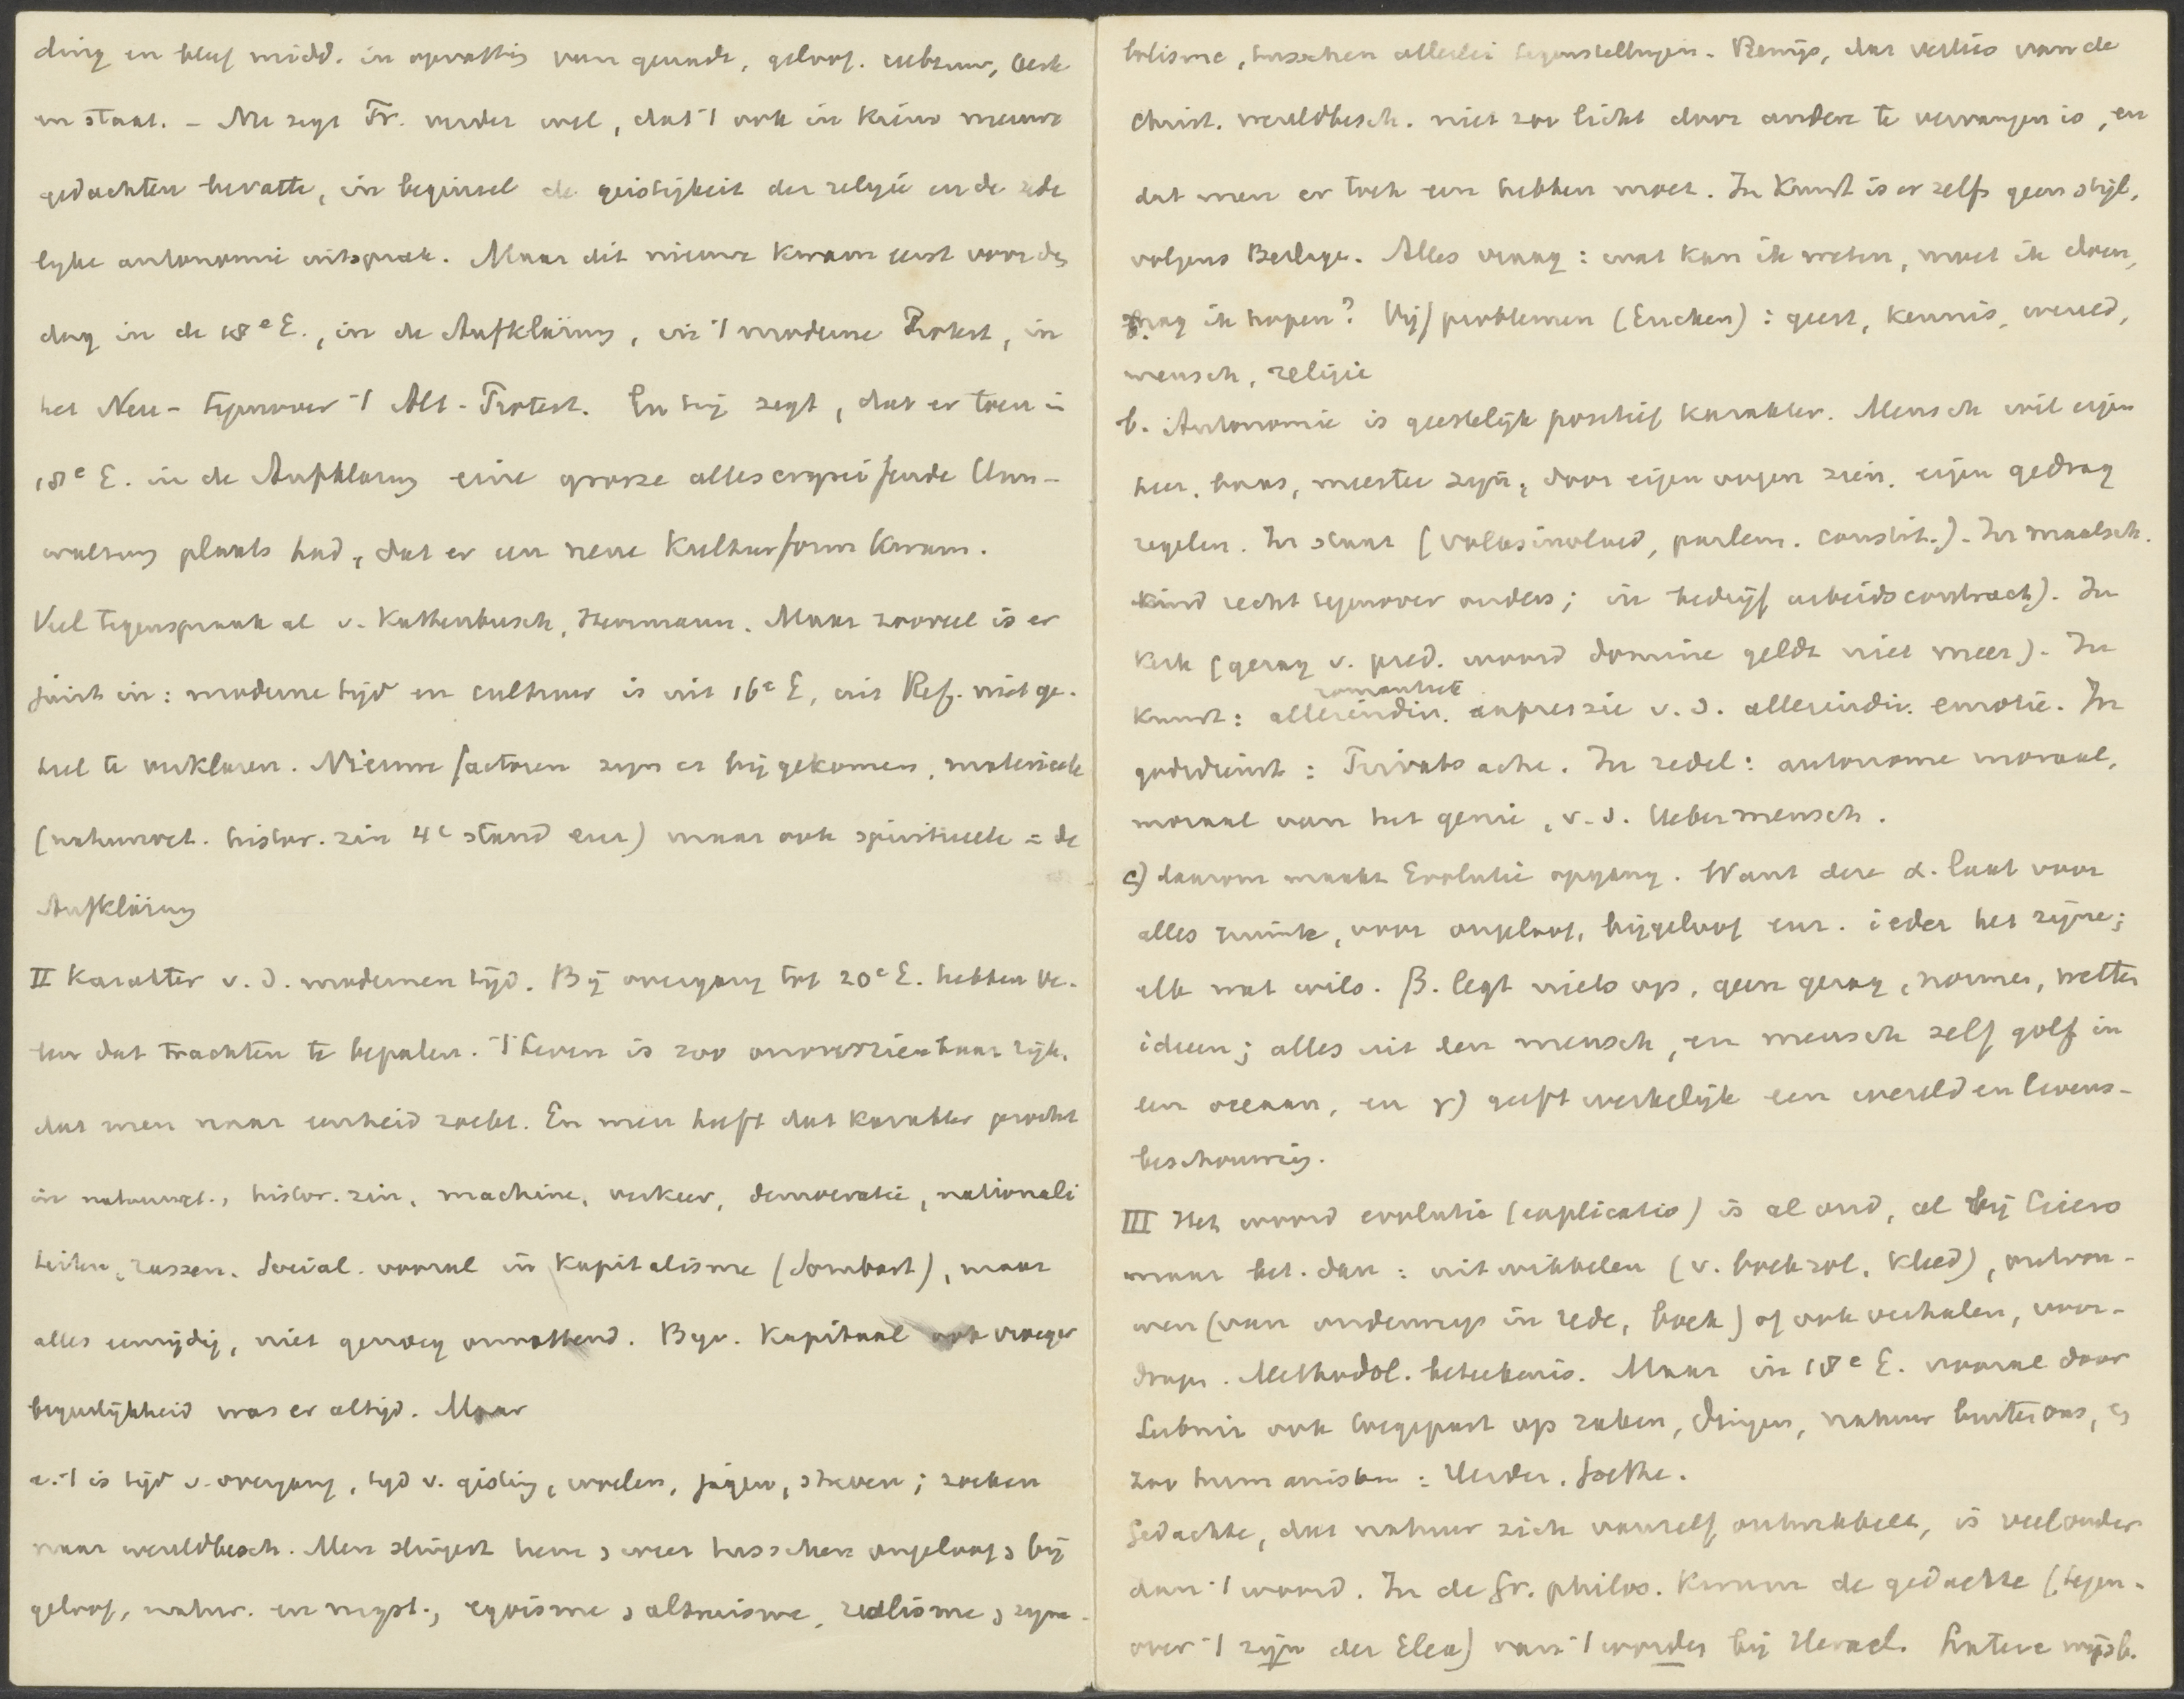 ding en bleef midd. in opvatting van genade, geloof, cultuur, kerk
en staat. – Nu zegt Tr. verder wel, dat 't ook in kiem nieuwe
gedachten bevatte, in beginsel de geistigkeit der religie en de zede
lyke autonomie uitsprak. Maar dit nieuwe kwam eerst voor den
dag in de 18e E., in de Aufklärung, in 't moderne Protest, in
het Neu- tegenover 't Alt-Protest. En hij zegt, dat er toen in
18e E. in de Aufklärung eine grosze alles ergreifende Um-
wälzung plaats had, dat er een neue Kulturform kwam.
Veel tegenspraak al v. Kattenbusch, Herrmann. Maar zooveel is er
juist in: moderne tijd en cultuur is uit 16e E, uit Ref. niet ge-
heel te verklaren. Nieuwe factoren zyn er bij gekomen, materieele
(natuurwet. histor. zin 4e stand enz) maar ook spiritueele = de
Aufklärung
II Karakter v. d. modernen tijd. Bij overgang tot 20e E. hebben ve-
len dat trachten te bepalen. 't Leven is zoo onoverzienbaar rijk,
dat men naar eenheid zoekt. En men heeft dat karakter gezocht
in natuurwet., histor. zin, machine, verkeer, democratie, nationali
teiten, rassen. Social. vooral in Kapitalisme (Sombart), maar
alles eenzijdig, niet genoeg omvattend. Bijv. Kapitaal ook vroeger
begeerlijkheid was er altijd. Maar
a. 't is tijd v. overgang, tyd v. gisting, woelen, jagen, streven; zoeken
naar wereldbesch. Men slingert heen en weer tusschen ongeloof en bij
geloof, natur. en myst., egoisme en altruisme, realisme en sym-
bolisme, tusschen allerlei tegenstellingen. Bewijs, dat verlies van de
Christ. wereldbesch. niet zoo licht door andere te vervangen is, en
dat men er toch een hebben moet. In Kunst is er zelfs geen stijl,
volgens Berlage. Alles vraag: wat kan ik weten, moet ik doen,
mag ik hopen? Vijf problemen (Eucken): geest, kennis, wereld,
mensch, religie
b. Autonomie is geestelijk positief karakter. Mensch wil eigen
heer, baas, meester zijn, door eigen oogen zien, eigen gedrag
regelen. In staat (volksinvloed, parlem. constit.). In maatsch.
kind recht tegenover ouders; in bedrijf arbeidscontract). In
Kerk (gezag v. pred. woord domine geldt niet meer). In
romantiek
Kunst: allerindiv. expressie v. d. allerindiv. emotie. In
godsdienst: Privatsache. In zedel: autonome moraal,
moraal van het genie, v. d. Uebermensch.
c) daarom maakt Evolutie opgang. Want deze α. laat voor
alles ruimte, voor ongeloof, bijgeloof enz. ieder het zijne;
elk wat wils. β. legt niets op, geen gezag, normen, wetten
ideeen; alles uit den mensch, en mensch zelf golf in
een oceaan, en γ) geeft werkelijk een wereld en levens-
beschouwing.
III Het woord evolutie (explicatio) is al oud, al bij Cicero
maar bet. dan: uitwikkelen (v. boekrol, kleed), ontvou-
wen (van onderwerp in rede, boek) of ook verhalen, voor-
dragen. Methodol. beteekenis. Maar in 18e E. vooral door
Leibniz ook toegepast op zaken, dingen, natuur buiten ons, en
zoo humanisten: Herder, Goethe.
Gedachte, dat natuur zich vanzelf ontwikkelt, is veel ouder
dan 't woord. In de Gr. philos. kwam de gedachte (tegen-
over 't zijn der Elea) van 't worden bij Heracl. Latere wijsb.